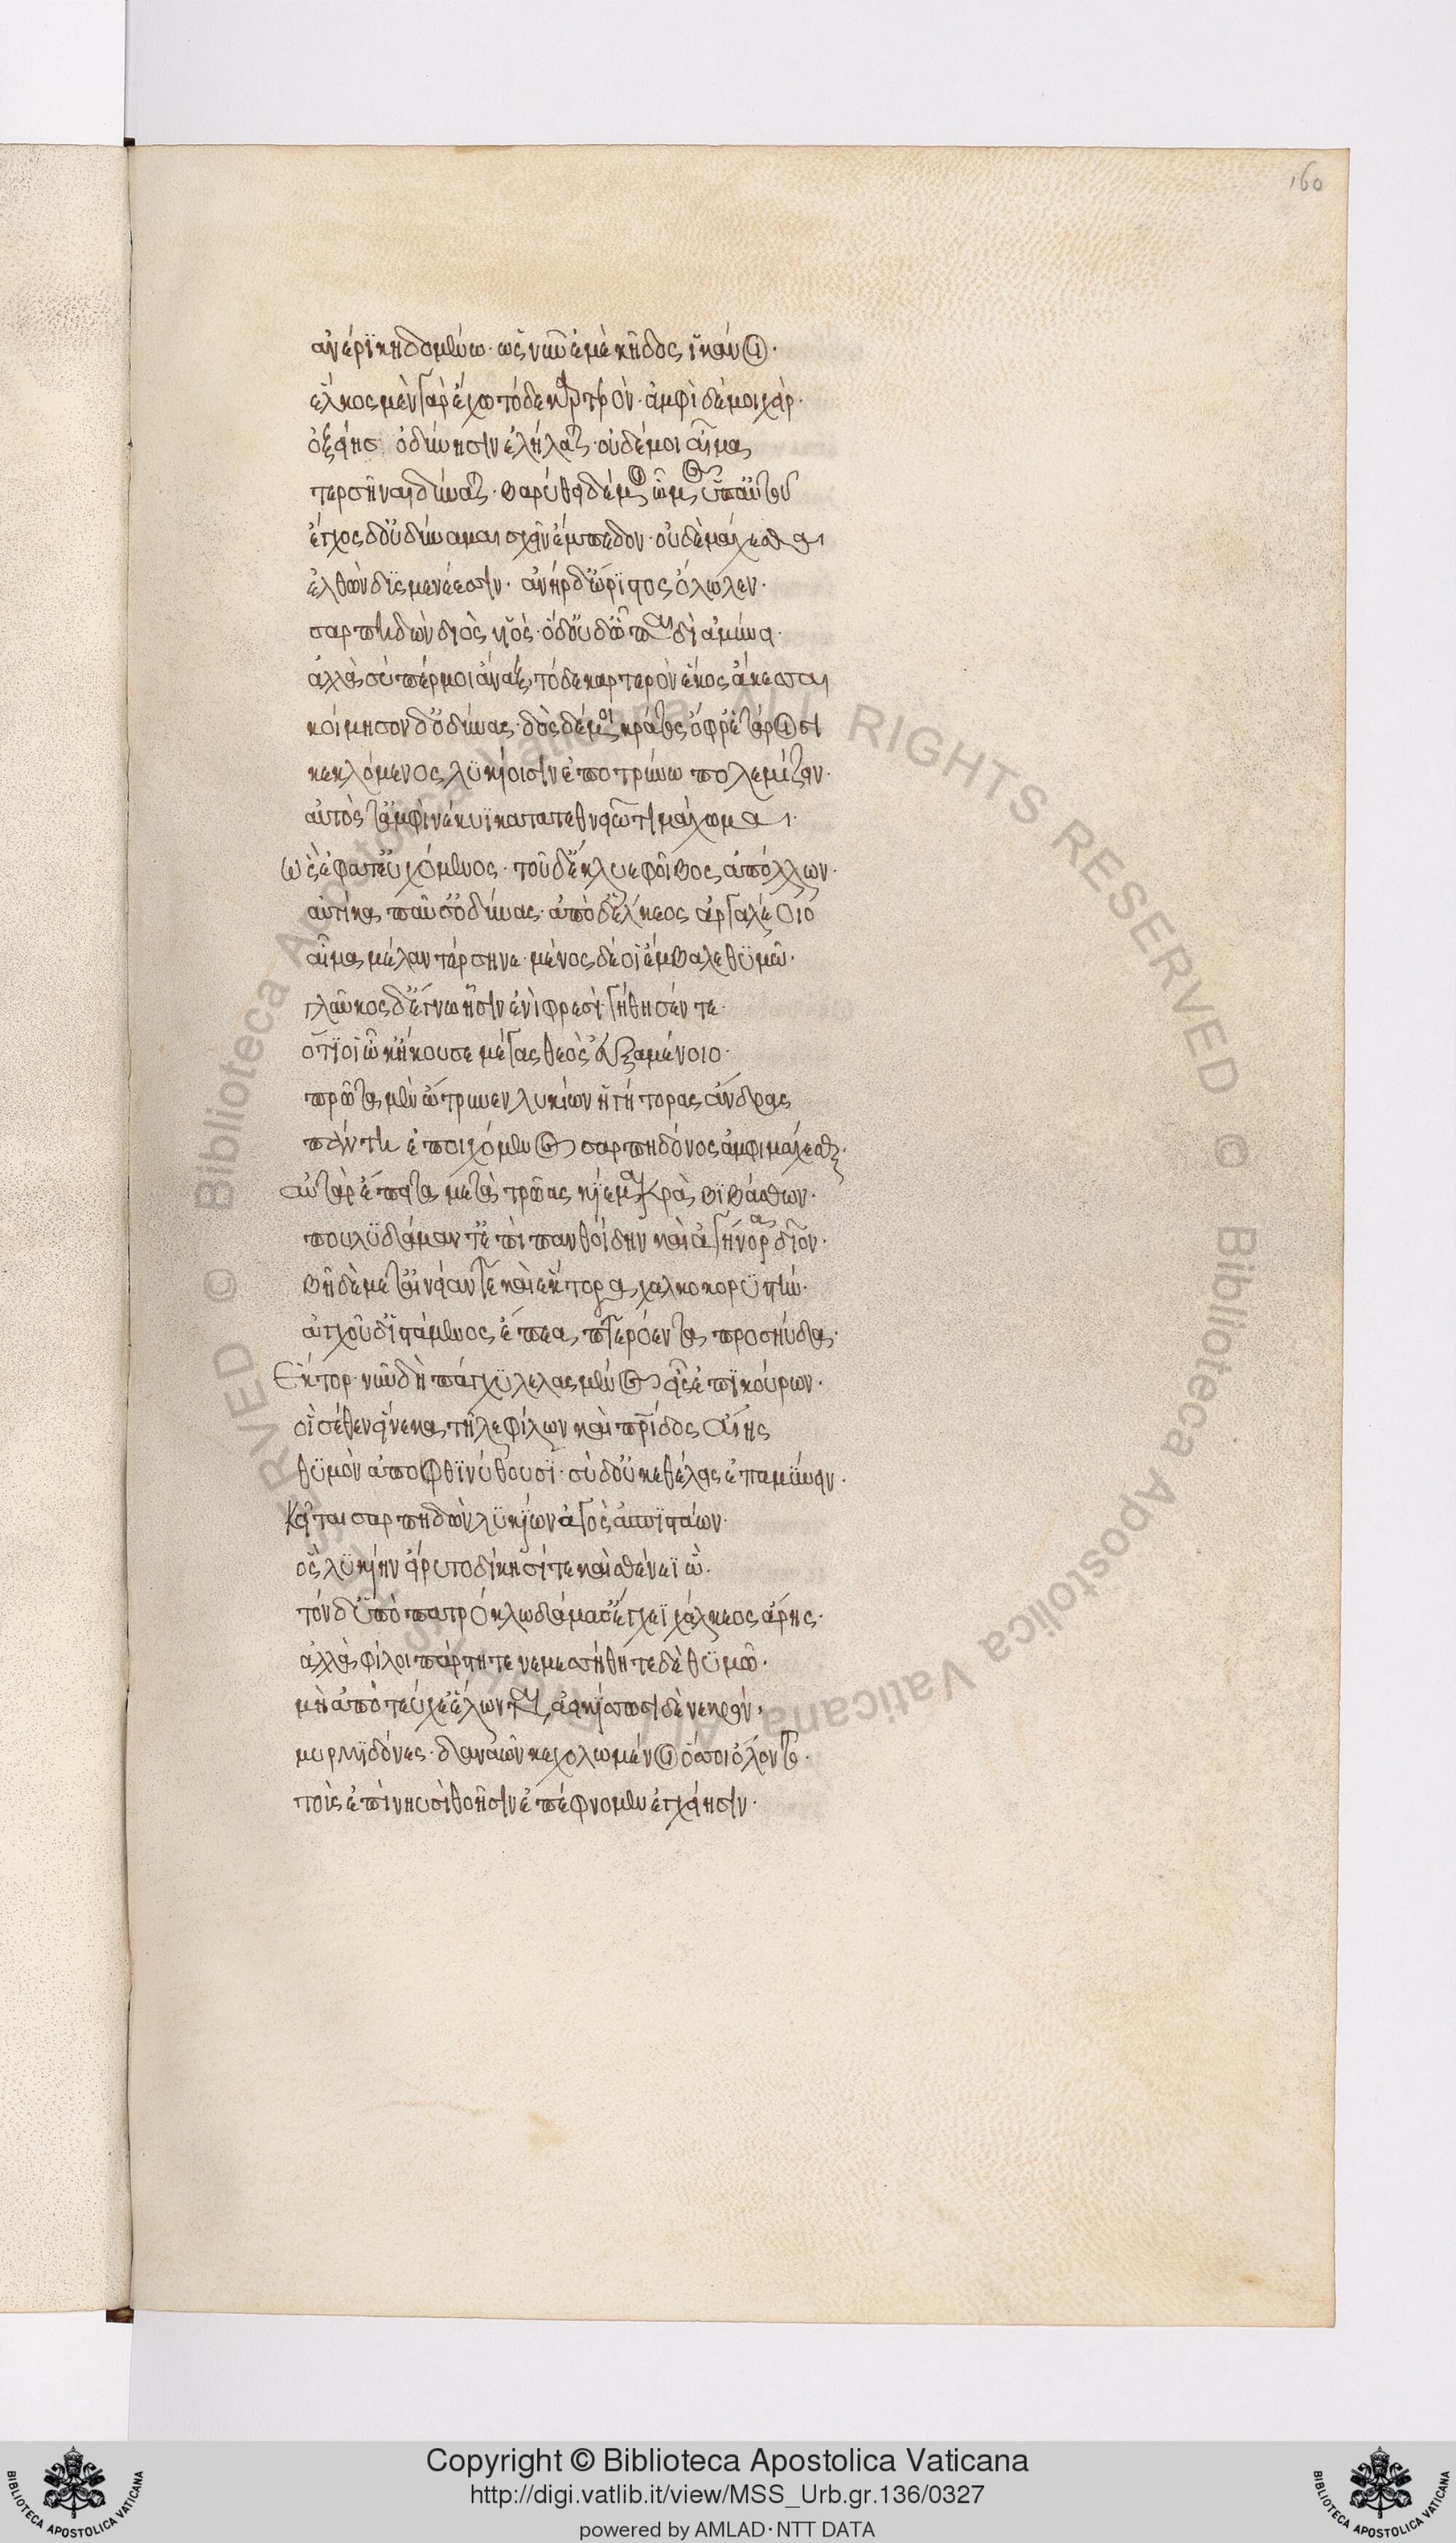 160
ἀνέρϊ κηδομένω· ὡς νῦν ἐμὲ κῆδος ἱκάνει·
ἕλκος μὲν γὰρ ἔχω τόδε καρτερόν· ἀμφὶ δέ μοι χὰρ·
ὀξείης ὀδύνησιν ἐλήλαται· οὐδέ μοι αἷμα
τερσῆναι δύναται· βαρύθει δέ μοι ὦμος ὑπ' αὐτοῦ
ἔγχος δ' οὐ δύναμαι σχεῖν ἔμπεδον· οὐδὲ μάχεσθαι
ἐλθὼν δϋσμενέεσσιν· ἀνὴρ δ' ὤρϊστος ὄλωλεν·
σαρπηδὼν διὸς υἱός· ὁ δ' οὐδ' ᾧ παιδὶ ἀμύνει·
ἀλλὰ σύ πέρ μοι ἄναξ τόδε καρτερὸν ἕλκος ἄκεσσαι
κοίμησον δ' ὀδύνας· δὸς δέ μοι κράτος ὄφρ' ἑτάροισι
κεκλόμενος λϋκίοισιν ἐποτρύνω πολεμίζειν·
αὐτός τ' ἀμφὶ νέκυϊ κατατεθνειῶτι μάχωμαι·
ὣς ἔφατ' εὐχόμενος· τοῦ δ' ἔκλυε φοῖβος ἀπόλλων·
αὐτίκα παῦσ' ὀδύνας· ἀπὸ δ' ἕλκεος ἀργαλέοιο
αἷμα μέλαν τέρσηνε· μένος δέ οἱ ἔμβαλε θϋμῶ·
γλαῦκος δ' ἔγνω ᾗσιν ἐνὶ φρεσὶ· γήθησέν τε·
ὅττϊ οἱ ὦκ' ἤκουσε μέγας θεὸς εὐξαμένοιο·
πρῶτα μὲν ὤτρυνεν λυκίων ἡγήτορας ἄνδρας
πάντη ἐποιχόμενος σαρπηδόνος ἀμφιμάχεσθαι·
αὐτὰρ ἔπειτα μετὰ τρῶας κίε μακρὰ βϊβάσθων·
πουλϋδάμαντ' ἔπι πανθοίδην καὶ ἀγήνορα δῖον·
βῆ δὲ μετ' αἰνείαν τε καὶ ἕκτορα χαλκοκορϋστήν·
ἀγχοῦ δ' ἱστάμενος ἔπεα πτερόεντα προσηύδα·
Ἕκτορ· νῦν δὴ πάγχϋ λελασμένος εἶς ἐπϊκούρων·
οἳ σέθεν εἵνεκα τῆλε φίλων καὶ πρίδος αἴης
θϋμὸν ἀποφθϊνύθουσϊ· σὺ δ' οὐκ ἐθέλεις ἐπαμϋνειν·
Κεῖται σαρπηδὼν λϋκίων ἀγὸς ἀσπϊστάων·
ὃς λϋκίην εἴρυτο δίκησί τε καὶ σθένεϊ ᾧ·
τὸν δ' ὑπὸ πατρόκλω δάμασ' ἔγχεϊ χάλκεος ἄρης·
ἀλλὰ φίλοι πάρστητε νεμεσήθητε δὲ θϋμῶ·
μὴ ἀπὸ τεύχε' ἕλωνται, ἀεικίσσωσι δὲ νεκρὸν·
μυρμϊδόνες· δαναῶν κεχολωμένοι ὅσσοι ὄλοντο·
τοὺς ἐπὶ νηυσὶ θοῆσιν ἐπέφνομεν ἐγχείησιν·
Copyright © Biblioteca Apostolica Vaticana
http://digi.vatlib.it/view/MSS_Urb.gr.136/0327
powered by AMLAD·NTT DATA